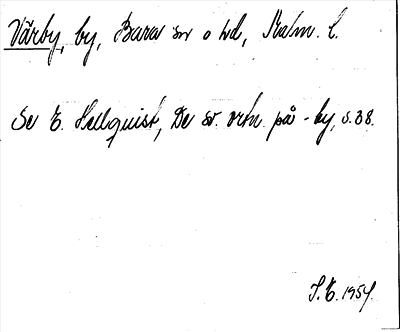 Värby, by, Bara sn o hd, Malm. l.
Se E. Hellquist, De sv. ortn. på -by, s. 38.
S.E. 1954.